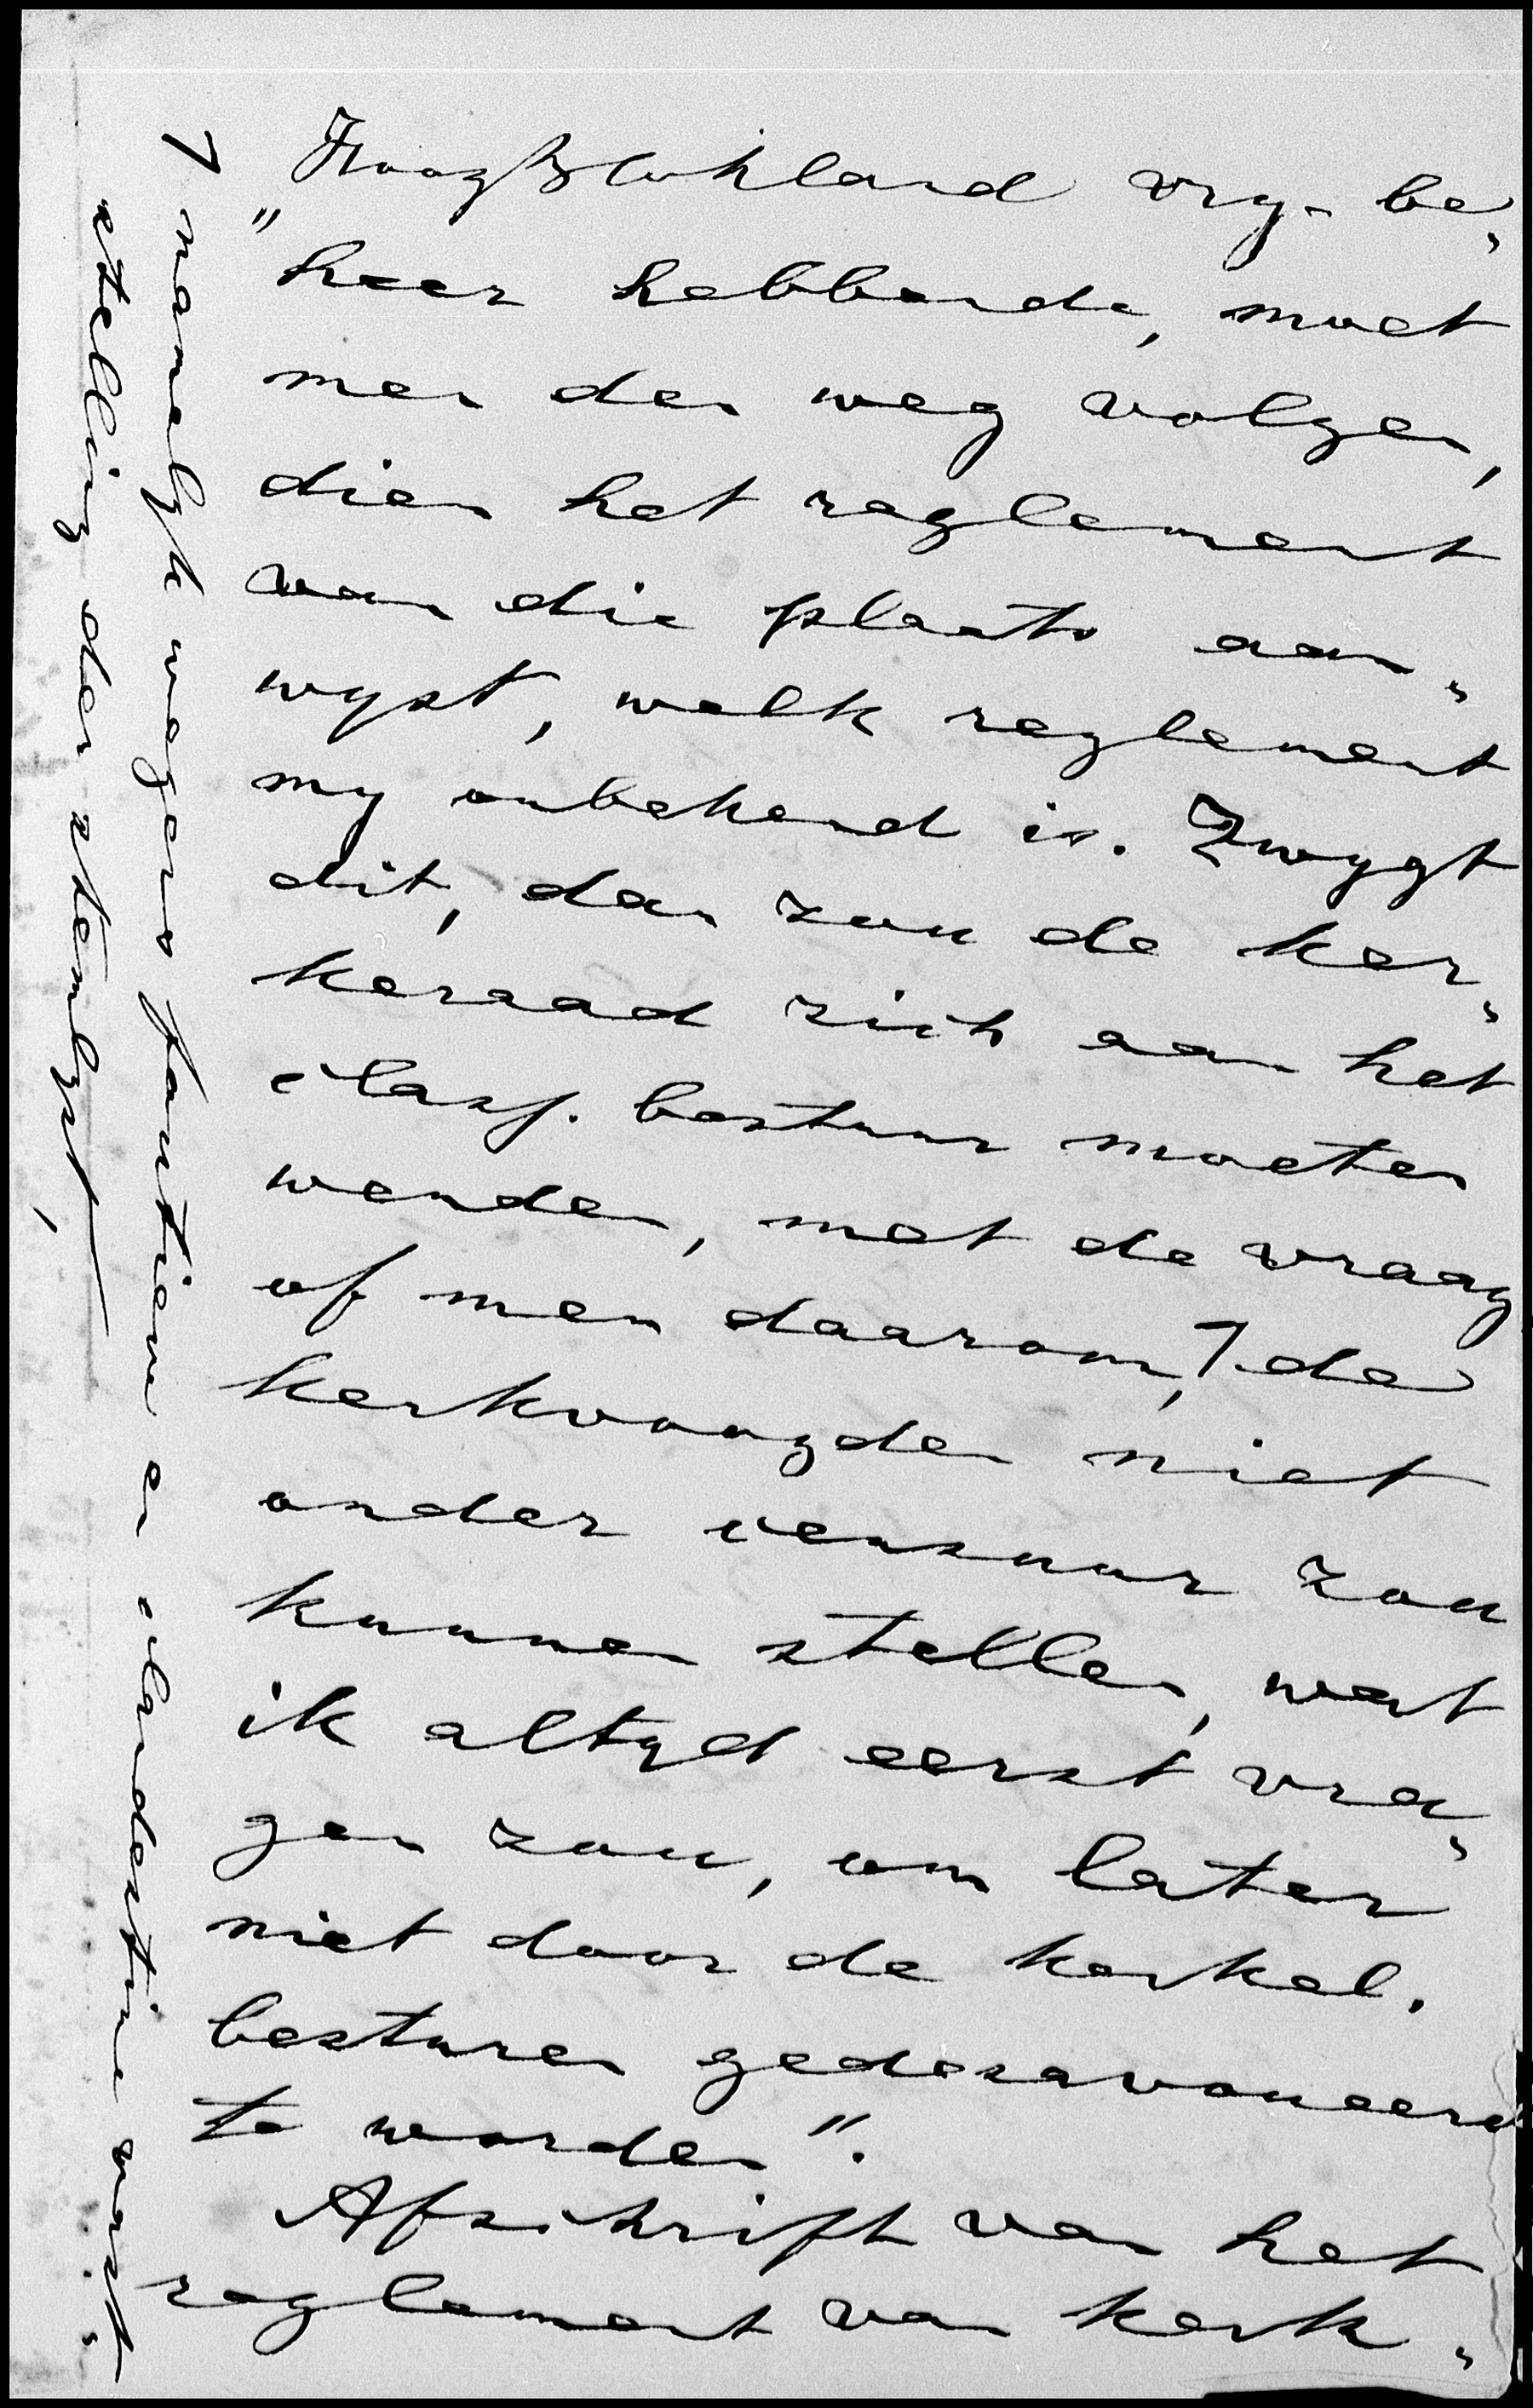 HoogBlokland vry-be„
„heer hebbende, moet
men den weg volgen,
dien het reglement
van die plaats aan„
wyst, welk reglement
my onbekend is. Zwygt
dit, dan zou de ker„
keraad zich aan het
class. bestuur moeten
wenden, met de vraag
of men daarom, ⁊ de
kerkvoogden niet
onder censuur zou
kunnen stellen, wat
ik altyd eerst vra„
gen zou, om later
niet door de kerkel.
besturen gedesavoueerd
te worden".
Afschrift van het
reglement van kerk„
⁊ namelyk wegens foutieve en clandestine vast„
stelling der stemlyst,